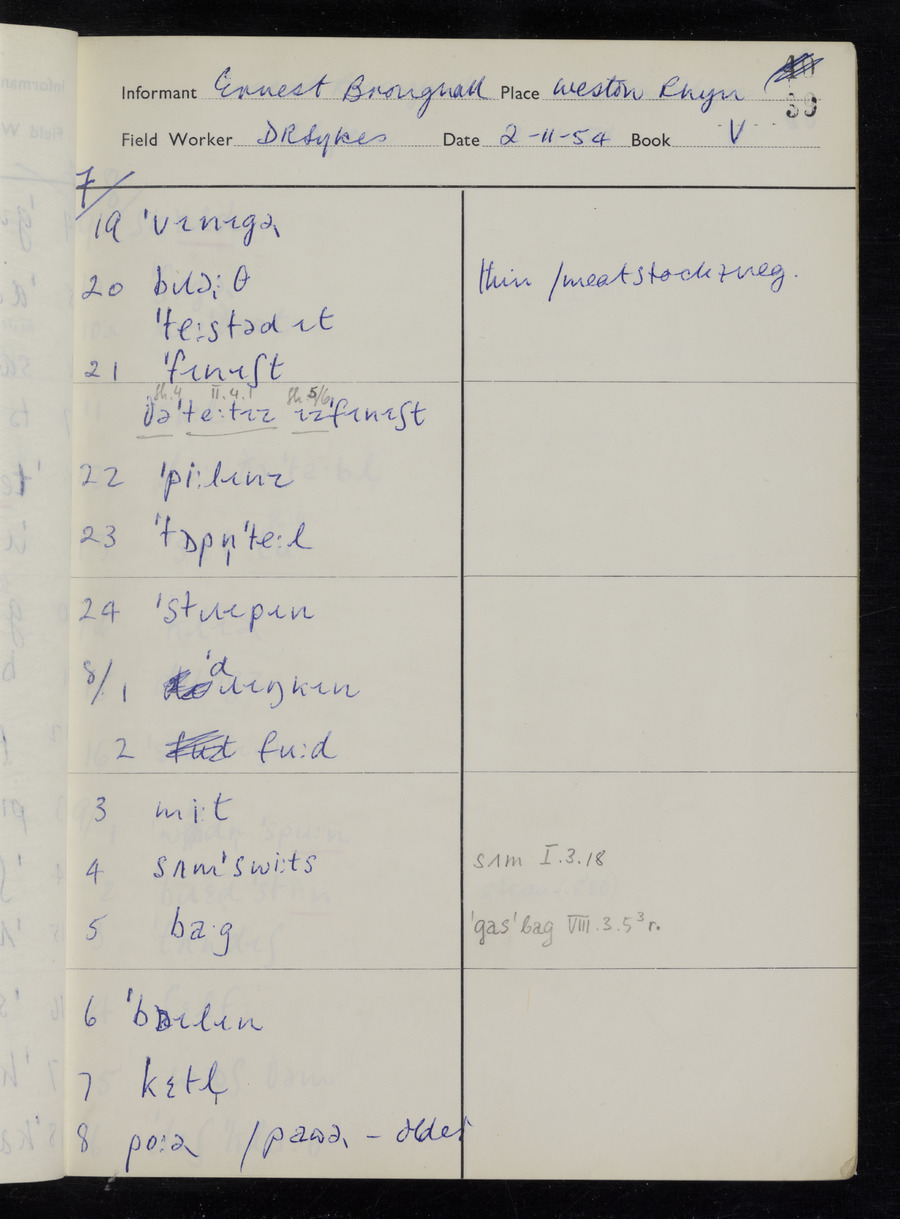 Informant Ernest Broughall Place Weston Rhyn
39
Field Worker DRSykes Date 2-11-54 Book V
7/
19 ˈvɪnɪgə
20 thin /meat stock + veg.
ˈteːstəd ɪt
21 ˈfɪnɪʃt
sh.4 II.4.1 sh 5/6
ðəˈteːtɪz ɪzˈfɪnɪʃt
22 ˈpiːlɪnz
23 ˈtɒpn̩ˈteːl
24 ˈstɹɪpɪn
8/1 ˈdɹɪŋkɪn
2 fuːd
3 miːt
4 sʌmˈswiːts sʌm I.3.18
5 baˑg ˈgasˈbag VIII.3.5³r.
6 ˈbɒɪlɪn
7 kɛtl̩
8 poːə /pawə – older